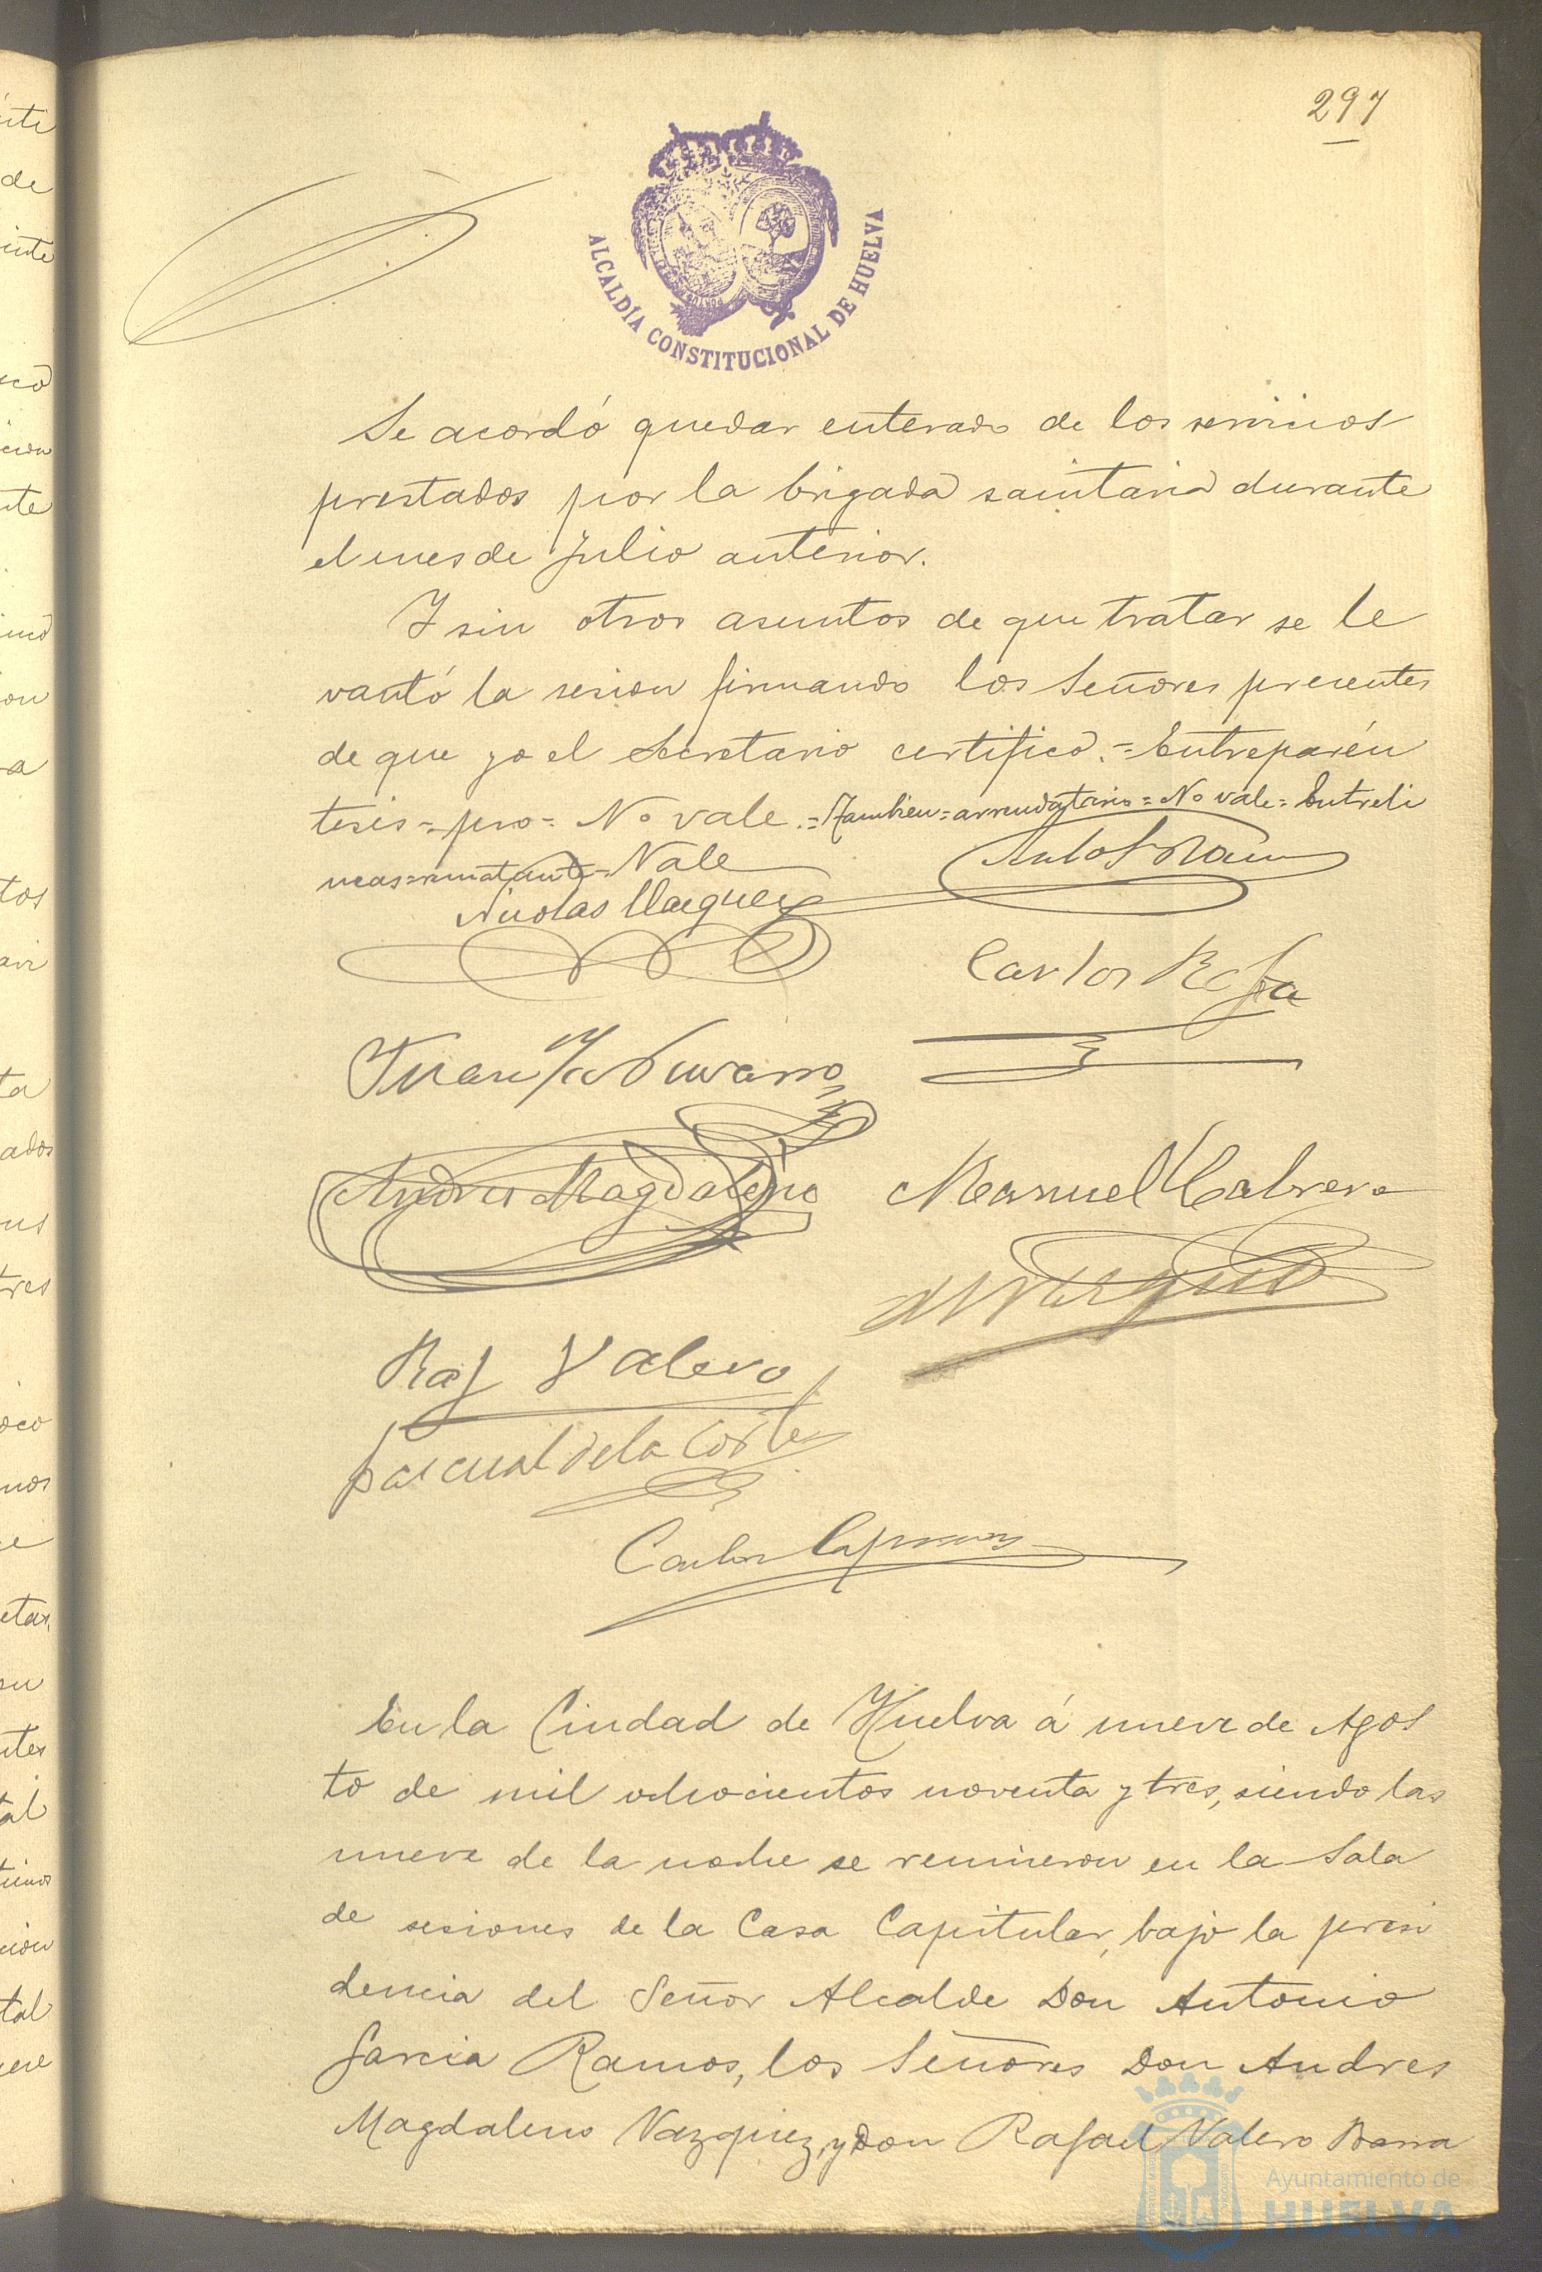 297
ALCALDÍA CONSTITUCIONAL DE HUELVA
Se acordó quedar enterado de los servicios
prestados por la brigada sanitaria durante
el mes de Julio anterior.
Y sin otros asuntos de que tratar se le
vantó la sesion firmando los Señores presentes
de que yo el Secretario certifico.=Entreparén
tesis=pro=No vale.=Tambien=arrendatario=No vale=Entreli
neas=rematante=Vale
Nicolas Vazquez
Carlos
Juan
Andres Magdaleno
Manuel Cabrera
Raf Valero
Pascual de la Corte
Carlos
En la Ciudad de Huelva á nueve de Agos
to de mil ochocientos noventa y tres, siendo las
nueve de la noche se reunieron en la Sala
de sesiones de la Casa Capitular, bajo la presi
dencia del Señor Alcalde Don Antonio
Garcia Ramos, los Señores Don Andres
Magdaleno Vazquez, y Don Rafael Valero Barra
Ayuntamiento de
HUELVA